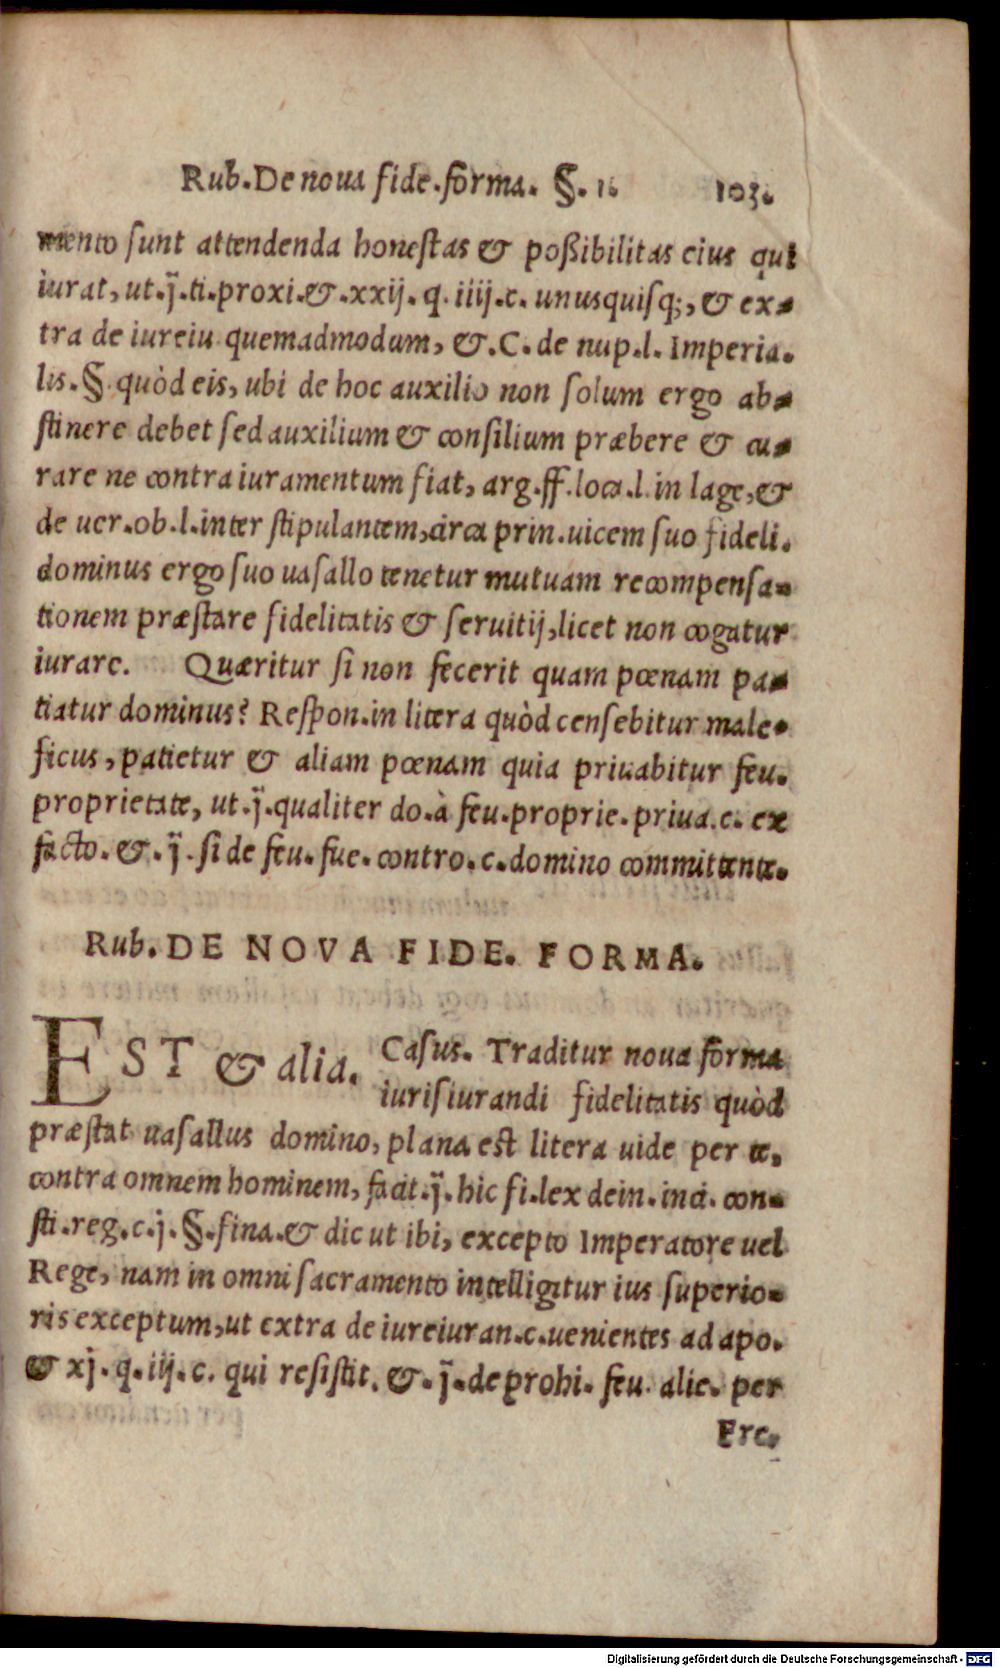 Rub. De noua fide. forma. §. 1. 103.
mento sunt attendenda honestas & poßibilitas eius qui
iurat, ut. j̈. ti. proxi. &. xxij. q. iiij. c. unusquisq;, & ex-
tra de iureiu quemadmodum, &. C. de nup. l. Imperia.
lis. §. quòd eis, ubi de hoc auxilio non solum ergo ab-
stinere debet sed auxilium & consilium præbere & cu-
rare ne contra iuramentum fiat, arg. ff. loca. l. in lage, &
de uer. ob. l. inter stipulantem, circa prin. uicem suo fideli.
dominus ergo suo uasallo tenetur mutuam recompensa-
tionem præstare fidelitatis & seruitij, licet non cogatur
iurare. Quæritur si non fecerit quam pœnam pa-
tiatur dominus? Respon. in litera quòd censebitur male-
ficus, patietur & aliam pœnam quia priuabitur feu.
proprietate, ut. j̈. qualiter do. à feu. proprie. priua. c. ex
facto. &. j̈. si de feu. fue. contro. c. domino committente.
Rub. DE NOVA FIDE. FORMA.
EST & alia. Casus. Traditur noua forma
iurisiurandi fidelitatis quòd
præstat uasallus domino, plana est litera uide per te.
contra omnem hominem, facit. j̈. hic fi. lex dein. inci. con-
sti. reg. c. j. §. fina. & dic ut ibi, excepto Imperatore uel
Rege, nam in omni sacramento intelligitur ius superio-
ris exceptum, ut extra de iureiuran. c. uenientes ad apo.
& xj. q. iij. c. qui resistit. &. j̈. de prohi. feu. alie. per
Fre.
Digitalisierung gefördert durch die Deutsche Forschungsgemeinschaft - DFG